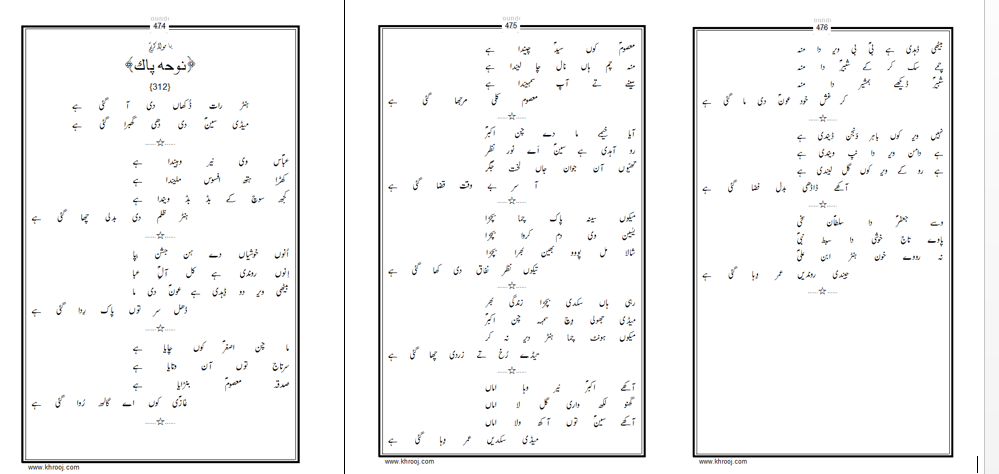 474
نوحہ پاک
(312)
ہنڑ رات ڈکھاں دی آ گئی ہے
میڈی سینؑ دی دھی گھبرا گئی ہے
عباسؑ دی نیر وہیندا ہے
کھڑا ہتھ افسوس ملیندا ہے
کجھ سوچ کے ہڈ ہڈ ویندا ہے
ہنڑ ظلم دی بدلی چھا گئی ہے
اُنوں خوشیاں دے ہن جشن بپا
اِنوں روندی ہے کل آلِؑ عبا
بیٹھی ویر دو ڈیدی ہے عونؑ دی ما
ڈھل سر توں پاک رِدا گئی ہے
ما چن اصغرؑ کوں چایا ہے
سرتاج توں آن ونایا ہے
صدقہ معصومؑ بنڑایا ہے
غازیؑ کوں اے گالھ رُوا گئی ہے
www.khrooj.com
475
معصومؑ کوں سیدؑ چیندا ہے
منہ چم ہاں نال چا لیندا ہے
سینے تے آپ سمہیندا ہے
معصوم کلی مرجھا گئی ہے
آیا خیمے ما دے چن اکبرؑ
رو آہدی ہے سینؑ اے نور نظر
تھیوں آن جوان جاں لخت جگر
آ سر تے وقت قضا گئی ہے
میکوں سینہ پاک چما بچڑا
یٰسین دی دم کروا بچڑا
شالا مل پووو بھین بھرا بچڑا
تیکوں نظر نفاق دی کھا گئی ہے
رہی ہاں سکدی بچڑا زندگی بھر
میڈی جھولی وچ سمہہ چن اکبرؑ
میکوں ہونٹ چما ہنڑ دیر نہ کر
میڈے رُخ تے زردی چھا گئی ہے
آکھے اکبرؑ نیر وہا اماں
گھنو لکھ واری گل لا اماں
آکھے سینؑ توں آکھ ولا اماں
میڈی سکدیں عمر وہا گئی ہے
www.khrooj.com
476
بیٹھی ڈیدی ہے بی بیؑ ویر دا منہ
چمے سک کر کے شبیرؑ دا منہ
شبیرؑ ڈیکھے ہمشیر دا منہ
کر غش خود عونؑ دی ما گئی ہے
نہیں ویر کوں باہر ونجن ڈیندی ہے
ہے دامن ویر دا نپ ویندی ہے
ہے رو کے ویر کوں گل لیندی ہے
آکھے ڈاڈھی بدل فضا گئی ہے
وسے جعفرؑ دا سلطان سخی
پاوے تاج خوشی دا سبط نبیؐ
نہ رووے خون ہنڑ ابن علیؑ
جیندی روندیں عمر وہا گئی ہے
www.khrooj.com